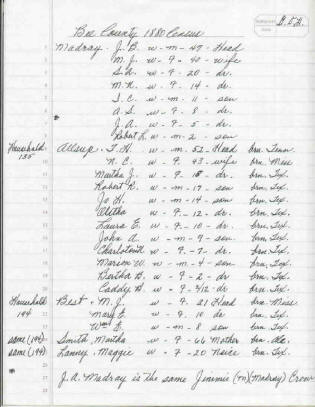 Bee County 1880 Census
Madray - J. B. w - m - 47 - Head
M. J. w - 7 - 40 - wife
S. A. w - 7 - 20 - dr.
M. K. w - 7 - 14 - dr.
I. C. w - m - 11 - son
A. S. w - 7 - 8 - dr.
J. A. w - 7 - 5 - dr.
Robert L. w - m - 2 - son
Household Allsup - T. H. w - m - 52 - Head brn. Tenn
135 N. C. w - 7 43 - wife brn. Miss
Martha J. w - 7 18 - dr. brn. Tex.
Robert R. w - m - 17 - son brn. Tex.
Jo H. w - m - 14 - son brn. Tex.
Aletha w - 7 - 12 - dr. brn. Tex.
Laura E. w - 7 - 10 - dr. brn. Tex.
John A. w - m - 9 - son brn. Tex.
w - 7 - 7 - dr. brn. Tex.
Marion W. w - m - 4 - son brn. Tex.
Bertha B. w - 7 - 2 - dr brn. Tex.
Caddy B. w - 7 - 2/12 dr brn. Tex.
Household Best - M. J. w - 7 - 31 Head brn. Miss
194 Mary E. w - 7 - 10 dr brn. Tex.
E. w - m - 8 son brn. Tex.
same (194) Smith, Martha w - 7 - 66 Mother brn. Ala.
same (194) Lanny, Maggie w - 7 - 20 Niece brn. Tex.
J. A. Madray is the same Jimmie (Madray) Crow